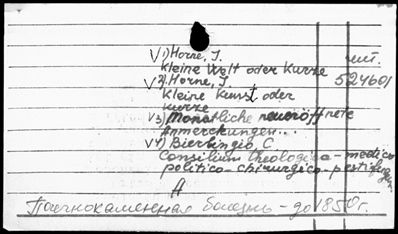 V1) Horne, J.
Kleine Welt oder Kurze
V2) Horne, J.
Kleine Kunst oder
kurze
V3) Monatliche neueröffnete
Anmerckungen...
V4) Bierlingio, C.
Consilium theologico-medico
politico-chirurgico-pestifugum
шт.
524601
A
болезнь - до 1850 г.